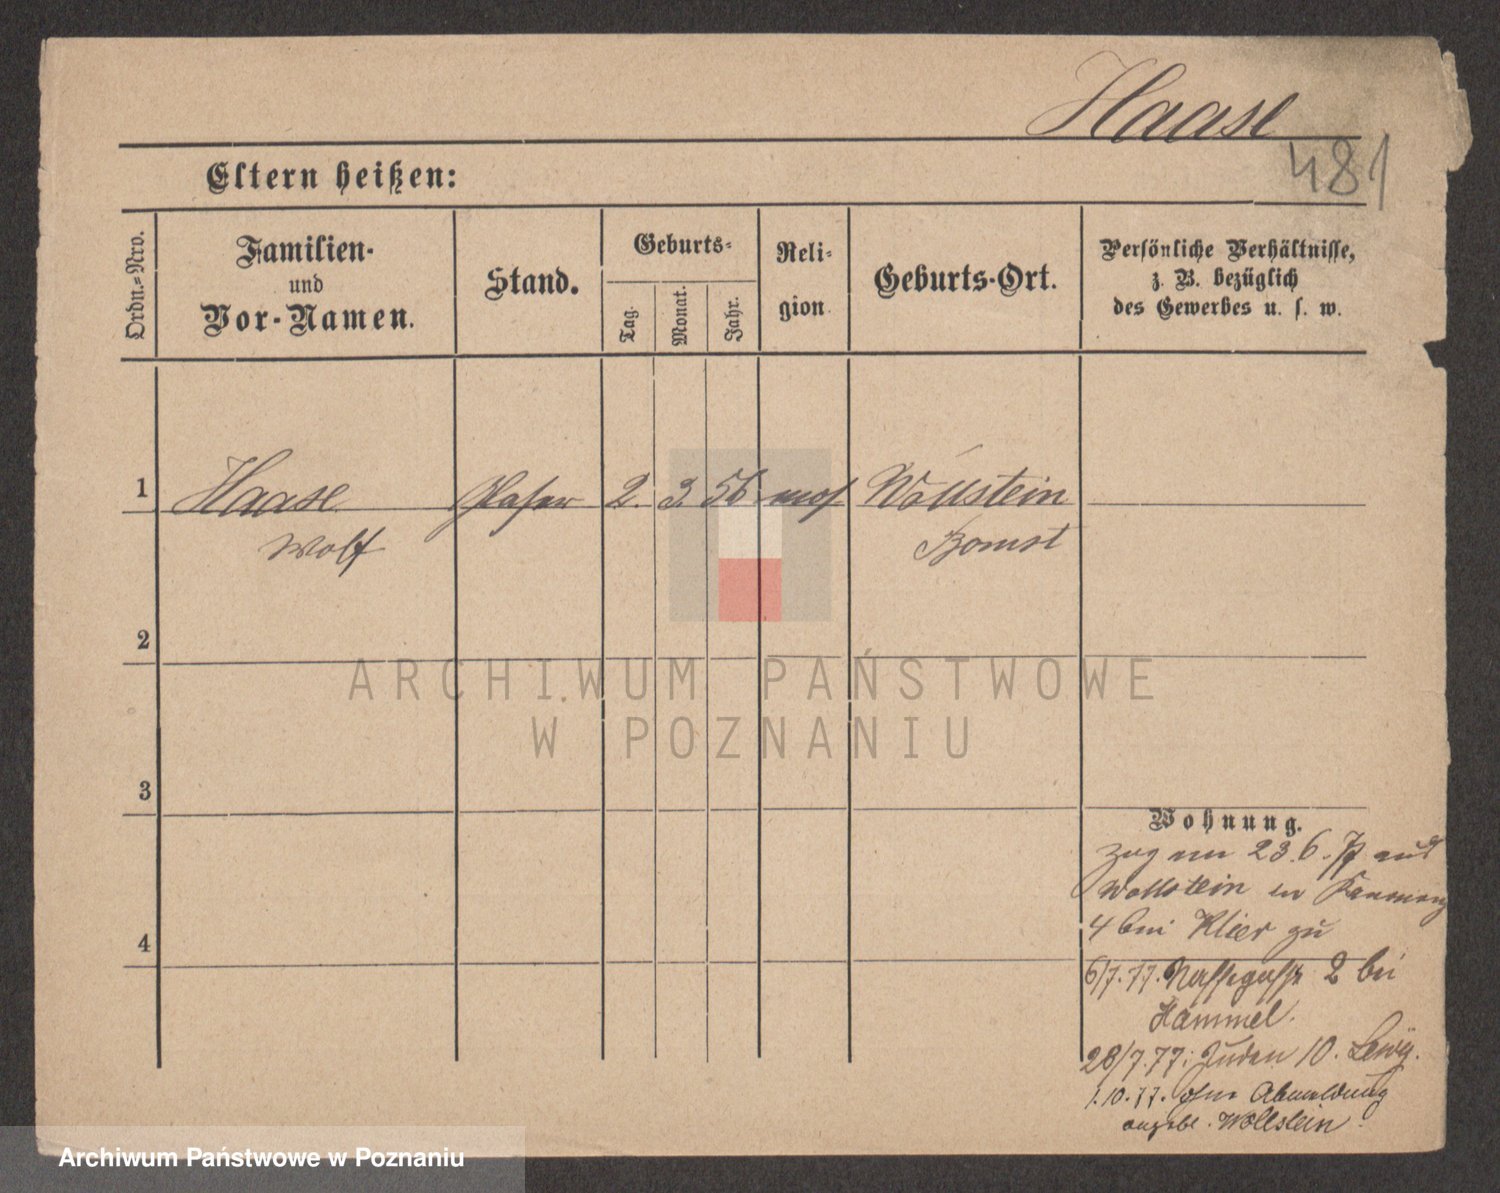 Haase
481
Eltern heißen:
Ordn.=Nro.
Familien-
und
Vor-Namen.
Stand.
Geburts=
Tag.
Monat.
Jahr.
Reli-
gion
Geburts-Ort.
Persönliche Verhältnisse,
z. B. bezüglich
des Gewerbes u. s. w.
1 Haase Glaser 2. 3. 56 mos Wollstein
Wolf Bomst
2
ARCHIWUM PAŃSTWOWE
W POZNANIU
3
Wohnung.
zog am 23.6.77 aus
Wollstein in
4 bei Klier zu
4
6/7.77. Nassegasse 2 bei
Hammel.
28/7.77: Juden 10. Lewy.
1.10.77. ohne Abmeldung
angebl. Wollstein.
Archiwum Państwowe w Poznaniu